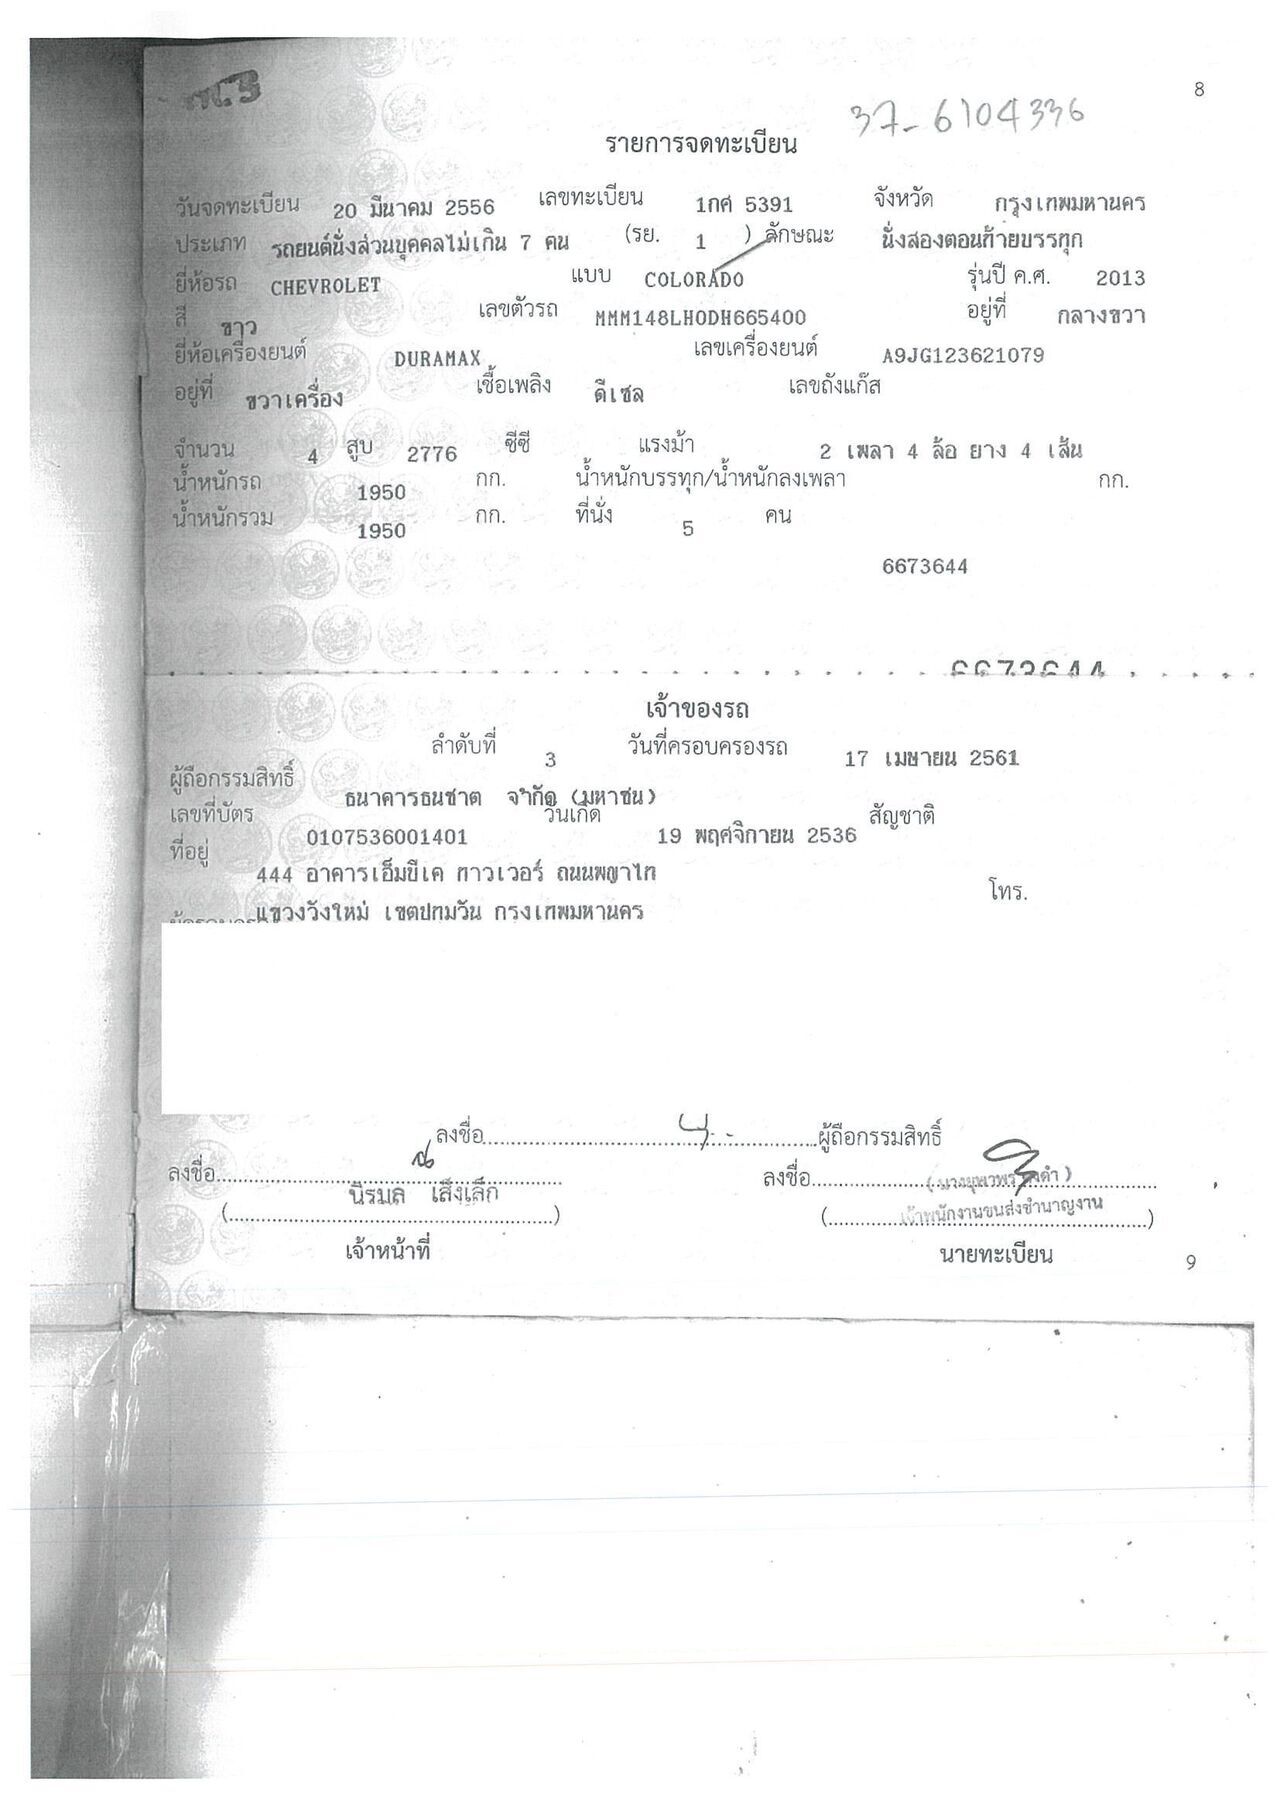 8
37-6104336
รายการจดทะเบียน
วันจดทะเบียน 20 มีนาคม 2556 เลขทะเบียน 1กศ 5391 จังหวัด กรุงเทพมหานคร
ประเภท รถยนต์นั่งส่วนบุคคลไม่เกิน 7 คน (รย. 1 ) ลักษณะ นั่งสองตอนท้ายบรรทุก
ยี่ห้อรถ CHEVROLET แบบ COLORADO รุ่นปี ค.ศ. 2013
สี ขาว เลขตัวรถ MMM148LH0DH665400 อยู่ที่ กลางขวา
ยี่ห้อเครื่องยนต์ DURAMAX เลขเครื่องยนต์ A9JG123621079
อยู่ที่ ขวาเครื่อง เชื้อเพลิง ดีเซล เลขถังแก๊ส
จำนวน 4 สูบ 2776 ซีซี แรงม้า 2 เพลา 4 ล้อ ยาง 4 เส้น
น้ำหนักรถ 1950 กก. น้ำหนักบรรทุก/น้ำหนักลงเพลา กก.
น้ำหนักรวม 1950 กก. ที่นั่ง 5 คน
6673644
6673644
เจ้าของรถ
ลำดับที่ 3 วันที่ครอบครองรถ 17 เมษายน 2561
ผู้ถือกรรมสิทธิ์ ธนาคารธนชาต จำกัด (มหาชน)
เลขที่บัตร 0107536001401 วันเกิด 19 พฤศจิกายน 2536 สัญชาติ
ที่อยู่ 444 อาคารเอ็มบีเค ทาวเวอร์ ถนนพญาไท
แขวงวังใหม่ เขตปทุมวัน กรุงเทพมหานคร โทร.
ลงชื่อ ผู้ถือกรรมสิทธิ์
ลงชื่อ ลงชื่อ
(นิรมล เส็งเล็ก)
เจ้าพนักงานขนส่งชำนาญงาน
เจ้าหน้าที่ นายทะเบียน
9